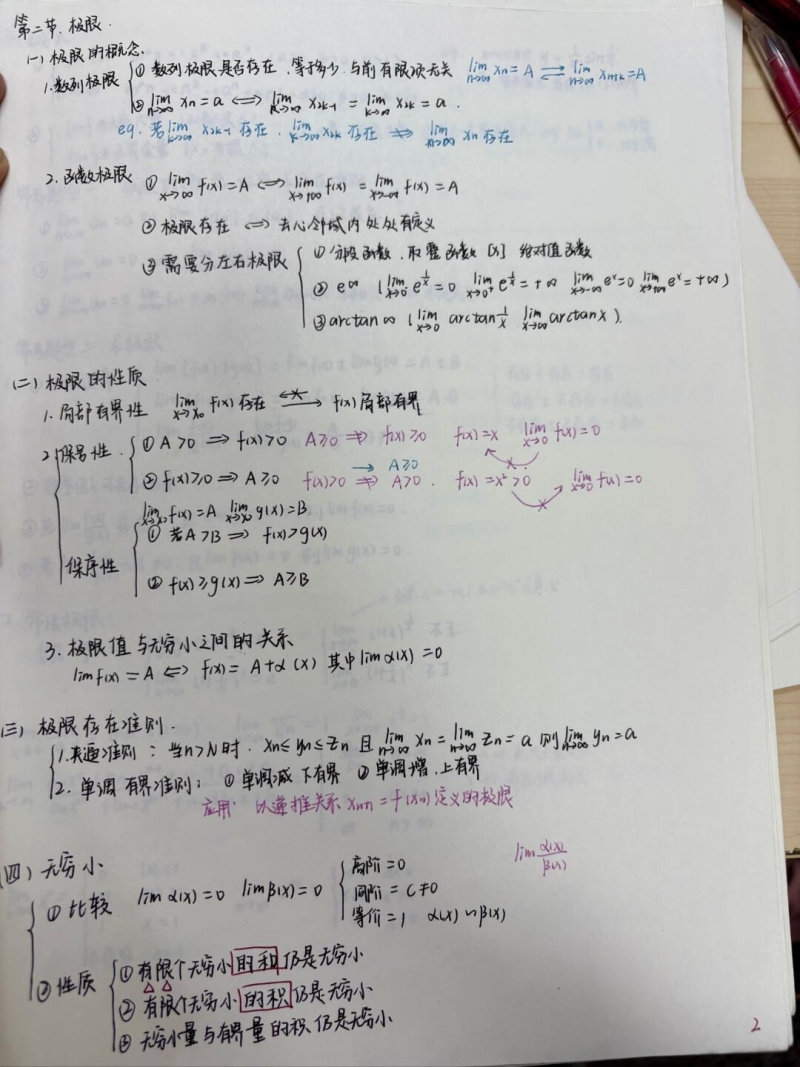 第二节. 极限.
(一) 极限的概念.
1. 数列极限 ① 数列极限是否存在、等于多少 与前有限项无关 lim n→∞ xn = A ⇌ lim n→∞ xn+k = A
② lim n→∞ xn = a ⟺ lim k→∞ x2k-1 = lim k→∞ x2k = a.
eg. 若 lim k→∞ x2k-1 存在. lim k→∞ x2k 存在 ⇏ lim n→∞ xn 存在
2. 函数极限 ① lim x→∞ f(x) = A ⟺ lim x→+∞ f(x) = lim x→-∞ f(x) = A
② 极限存在 ⟺ 去心邻域内处处有定义
③ 需要分左右极限 ① 分段函数. 取整函数 [x] 绝对值函数
② e^∞ ( lim x→0⁻ e^(1/x) = 0 lim x→0⁺ e^(1/x) = +∞ lim x→-∞ e^x = 0 lim x→+∞ e^x = +∞ )
③ arctan ∞ ( lim x→0 arctan 1/x lim x→∞ arctan x ).
(二) 极限的性质
1. 局部有界性 lim x→x₀ f(x) 存在 → f(x) 局部有界
2 保号性. ① A>0 ⟹ f(x)>0 A≥0 ⇏ f(x)≥0 f(x)=x lim x→0 f(x)=0
→ A≥0
② f(x)≥0 ⟹ A≥0 f(x)>0 ⇏ A>0. f(x)=x²>0 lim x→0 f(x)=0
lim x→x₀ f(x)=A lim x→x₀ g(x)=B
保序性 ① 若A>B ⟹ f(x)>g(x)
② f(x)≥g(x) ⟹ A≥B
3. 极限值与无穷小之间的关系
lim f(x) = A ⟺ f(x) = A+α(x) 其中 lim α(x) = 0
(三) 极限存在准则.
1. 夹逼准则: 当n>N时. xn≤yn≤zn 且 lim n→∞ xn = lim n→∞ zn = a 则 lim n→∞ yn = a
2. 单调有界准则: ① 单调减 下有界 ② 单调增. 上有界
应用. 以递推关系 xn+1 = f(xn) 定义的极限
(四) 无穷小
① 比较 lim α(x)=0 lim β(x)=0 高阶=0 lim α(x)/β(x)
同阶=C≠0
等价=1 α(x)∽β(x)
② 性质 ① 有限个无穷小的和仍是无穷小
② 有限个无穷小的积仍是无穷小
③ 无穷小量与有界量的积仍是无穷小
2